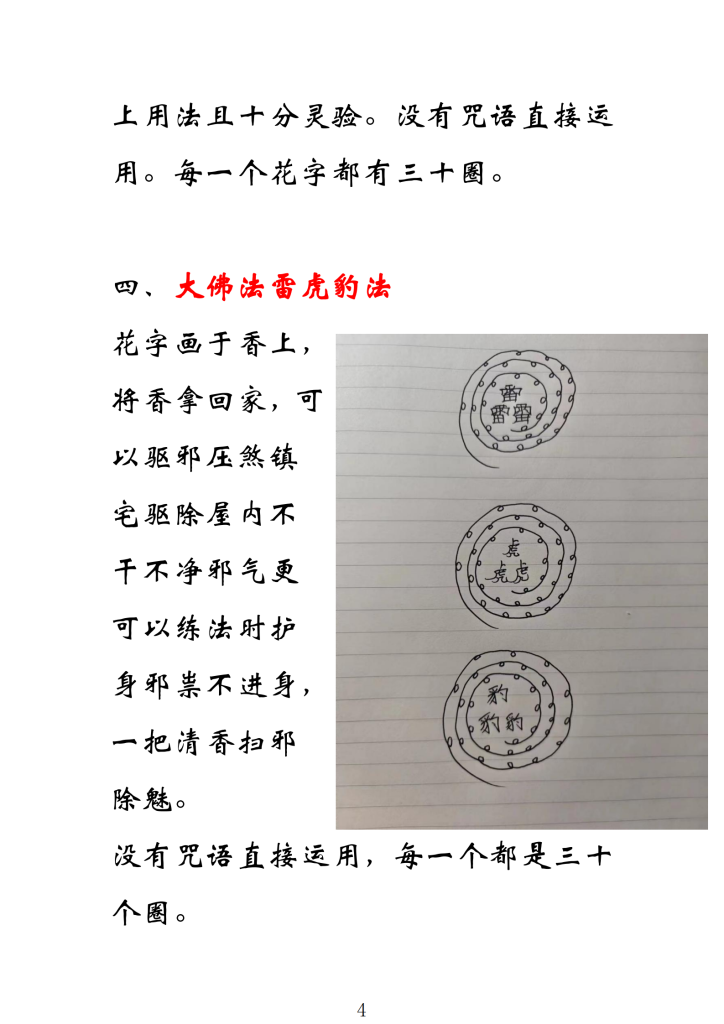 上用法且十分灵验。没有咒语直接运
用。每一个花字都有三十圈。
四、大佛法雷虎豹法
花字画于香上，
将香拿回家，可
以驱邪压煞镇
宅驱除屋内不
干不净邪气更
可以练法时护
身邪祟不进身，
一把清香扫邪
除魅。
雷
雷雷
虎
虎虎
豹
豹豹
没有咒语直接运用，每一个都是三十
个圈。
4